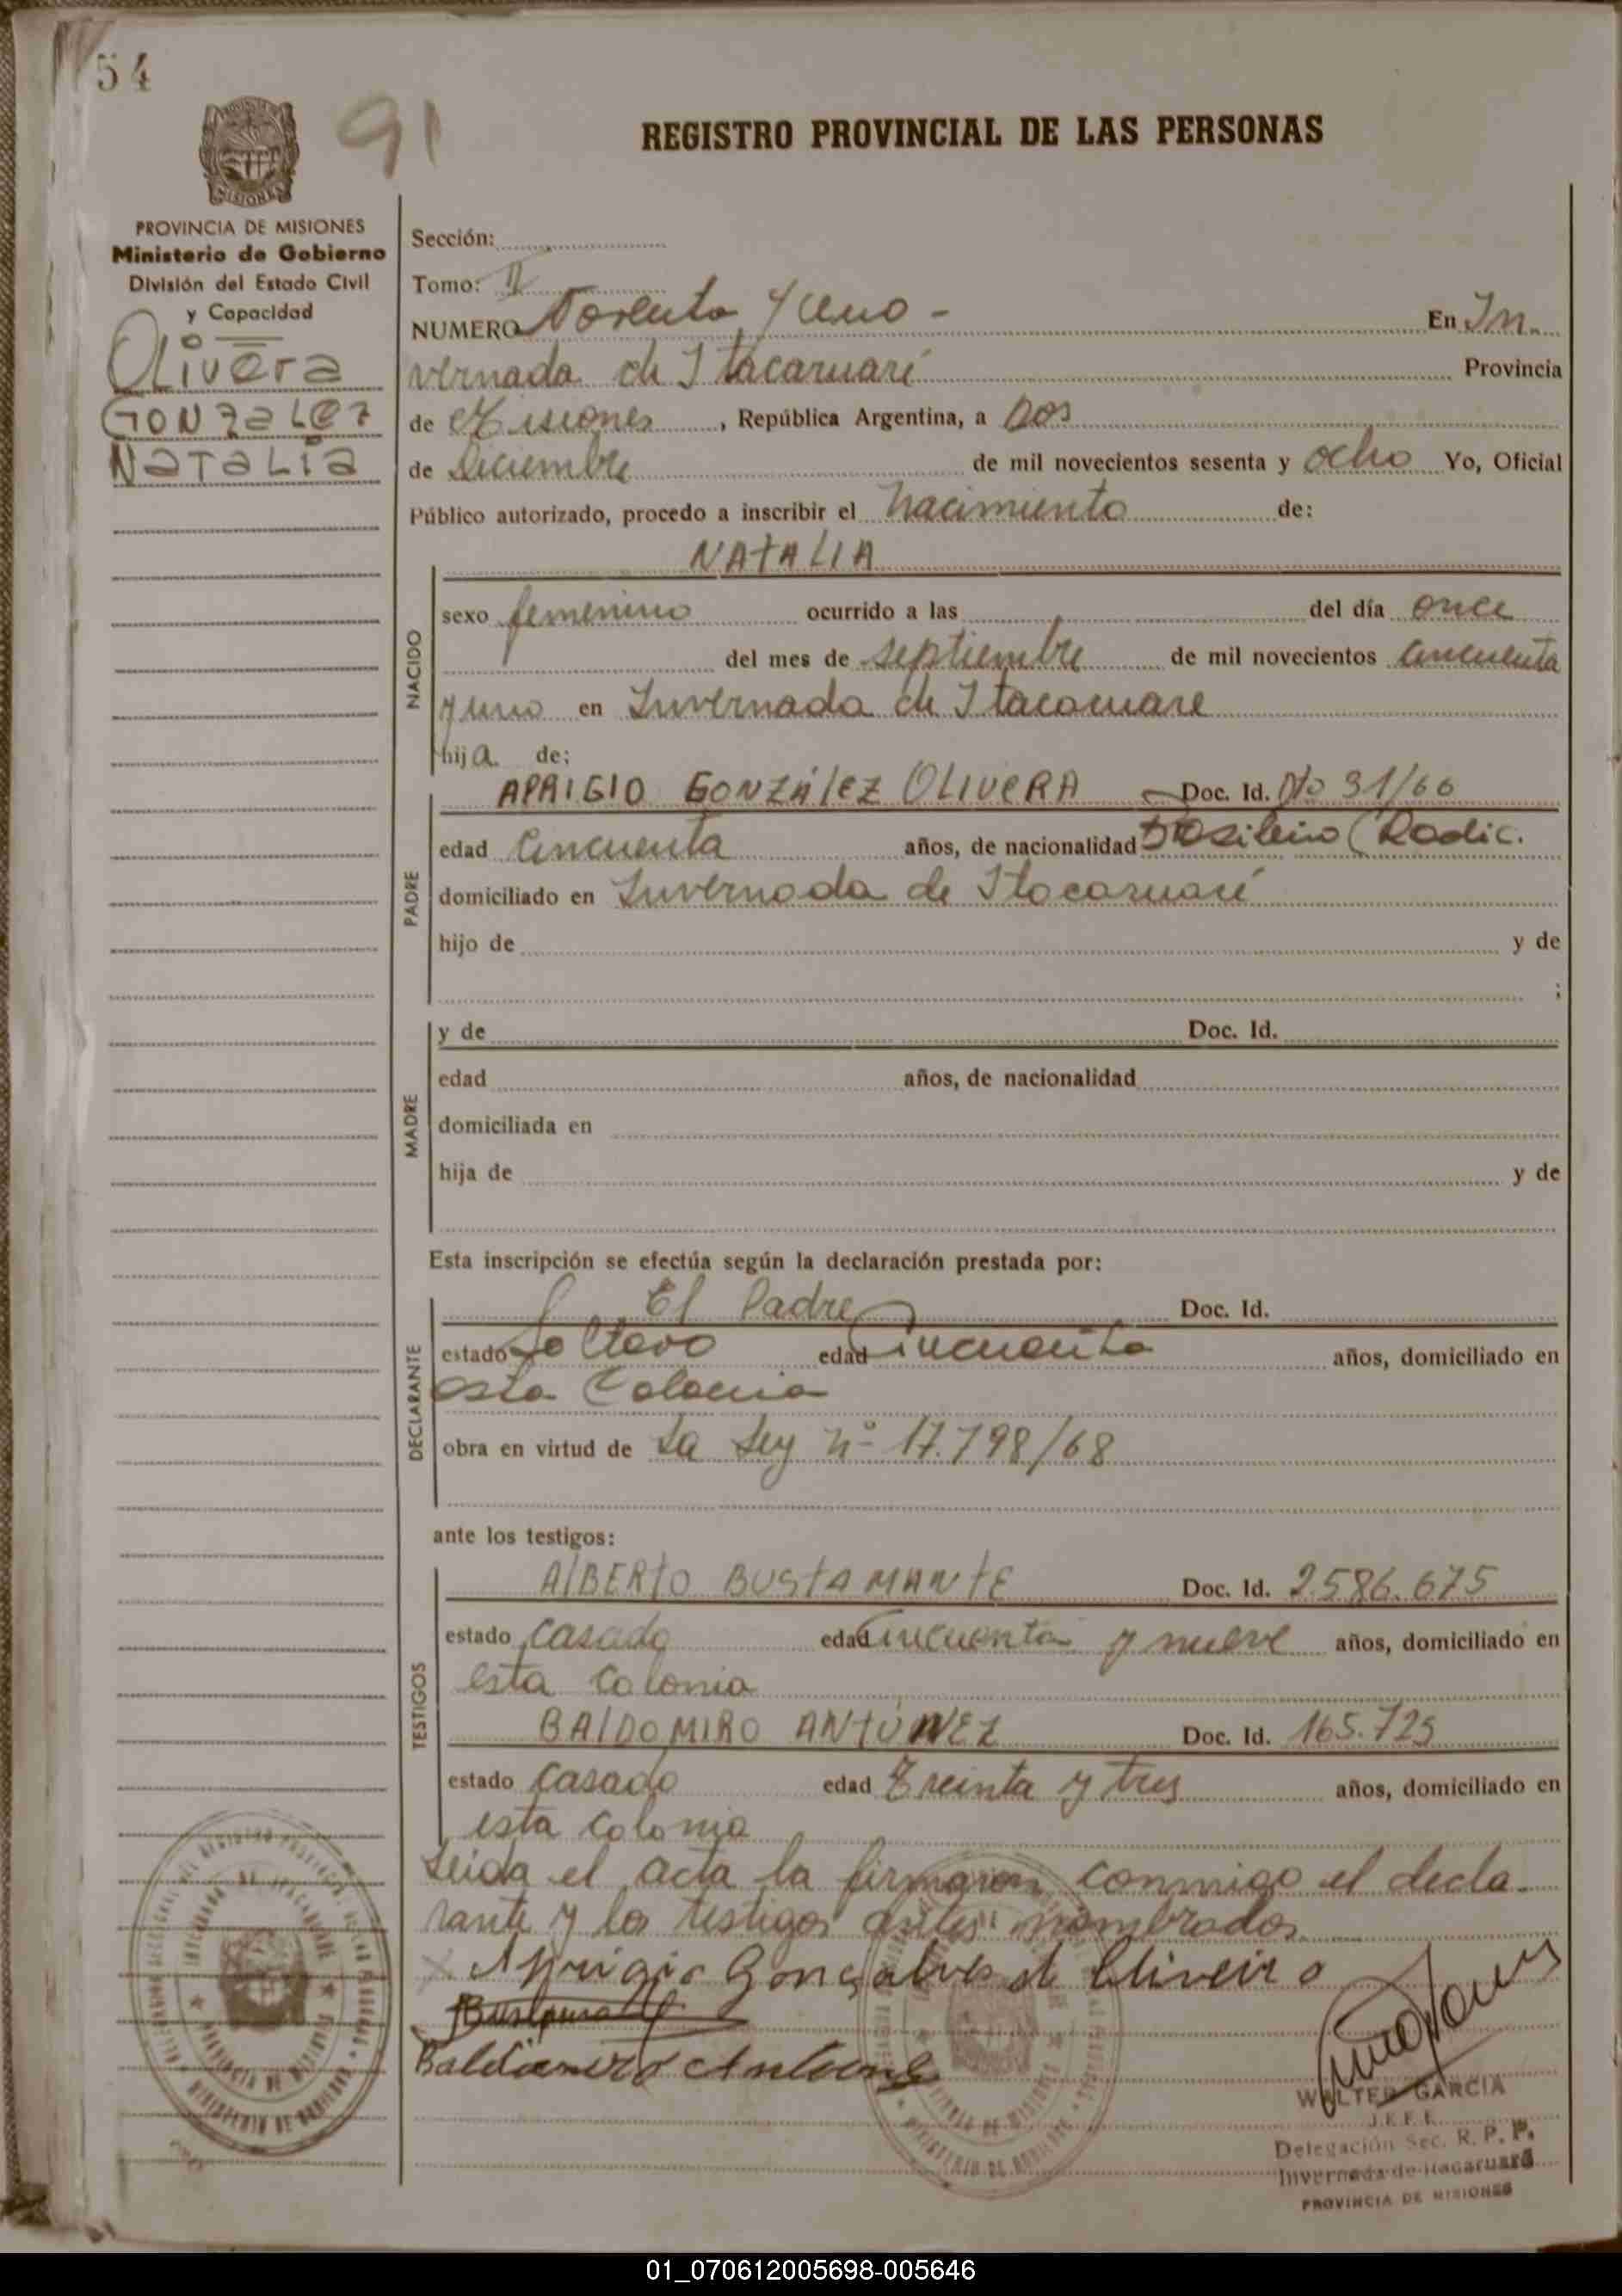 54
91
REGISTRO PROVINCIAL DE LAS PERSONAS
MISIONES
PROVINCIA DE MISIONES
Ministerio de Gobierno
División del Estado Civil
y Capacidad
Olivera
GONZALEZ
NATALIA
Sección:
Tomo: II
NUMERO Noventa y Uno - En In
vernada de Itacaruaré Provincia
de Misiones, República Argentina, a Dos
de Diciembre de mil novecientos sesenta y ocho Yo, Oficial
Público autorizado, procedo a inscribir el Nacimiento de:
NATALIA
NACIDO
sexo femenino ocurrido a las del día once
del mes de septiembre de mil novecientos cincuenta
y uno en Invernada de Itacaruare
hija de:
PADRE
APRIGIO GONZÁLEZ OLIVERA Doc. Id. No 31/66
edad Cincuenta años, de nacionalidad Brasileño (Radic.
domiciliado en Invernada de Itacaruaré
hijo de y de
;
MADRE
y de Doc. Id.
edad años, de nacionalidad
domiciliada en
hija de y de
Esta inscripción se efectúa según la declaración prestada por:
DECLARANTE
El Padre Doc. Id.
estado Soltero edad Cincuenta años, domiciliado en
esta Colonia
obra en virtud de La Ley nº 17.798/68
ante los testigos:
TESTIGOS
ALBERTO BUSTAMANTE Doc. Id. 2.586.675
estado casado edad Cincuenta y nueve años, domiciliado en
esta colonia
BALDOMIRO ANTÚNEZ Doc. Id. 165.725
estado casado edad Treinta y tres años, domiciliado en
esta colonia
Leida el acta la firmaron conmigo el decla
rante y los testigos antes nombrados
Aprigio Gonçalves de Oliveira
Bustamante
Baldomiro Antune
WALTER GARCIA
JEFE
Delegación Sec. R. P. P.
Invernada de Itacaruaré
PROVINCIA DE MISIONES
01_070612005698-005646